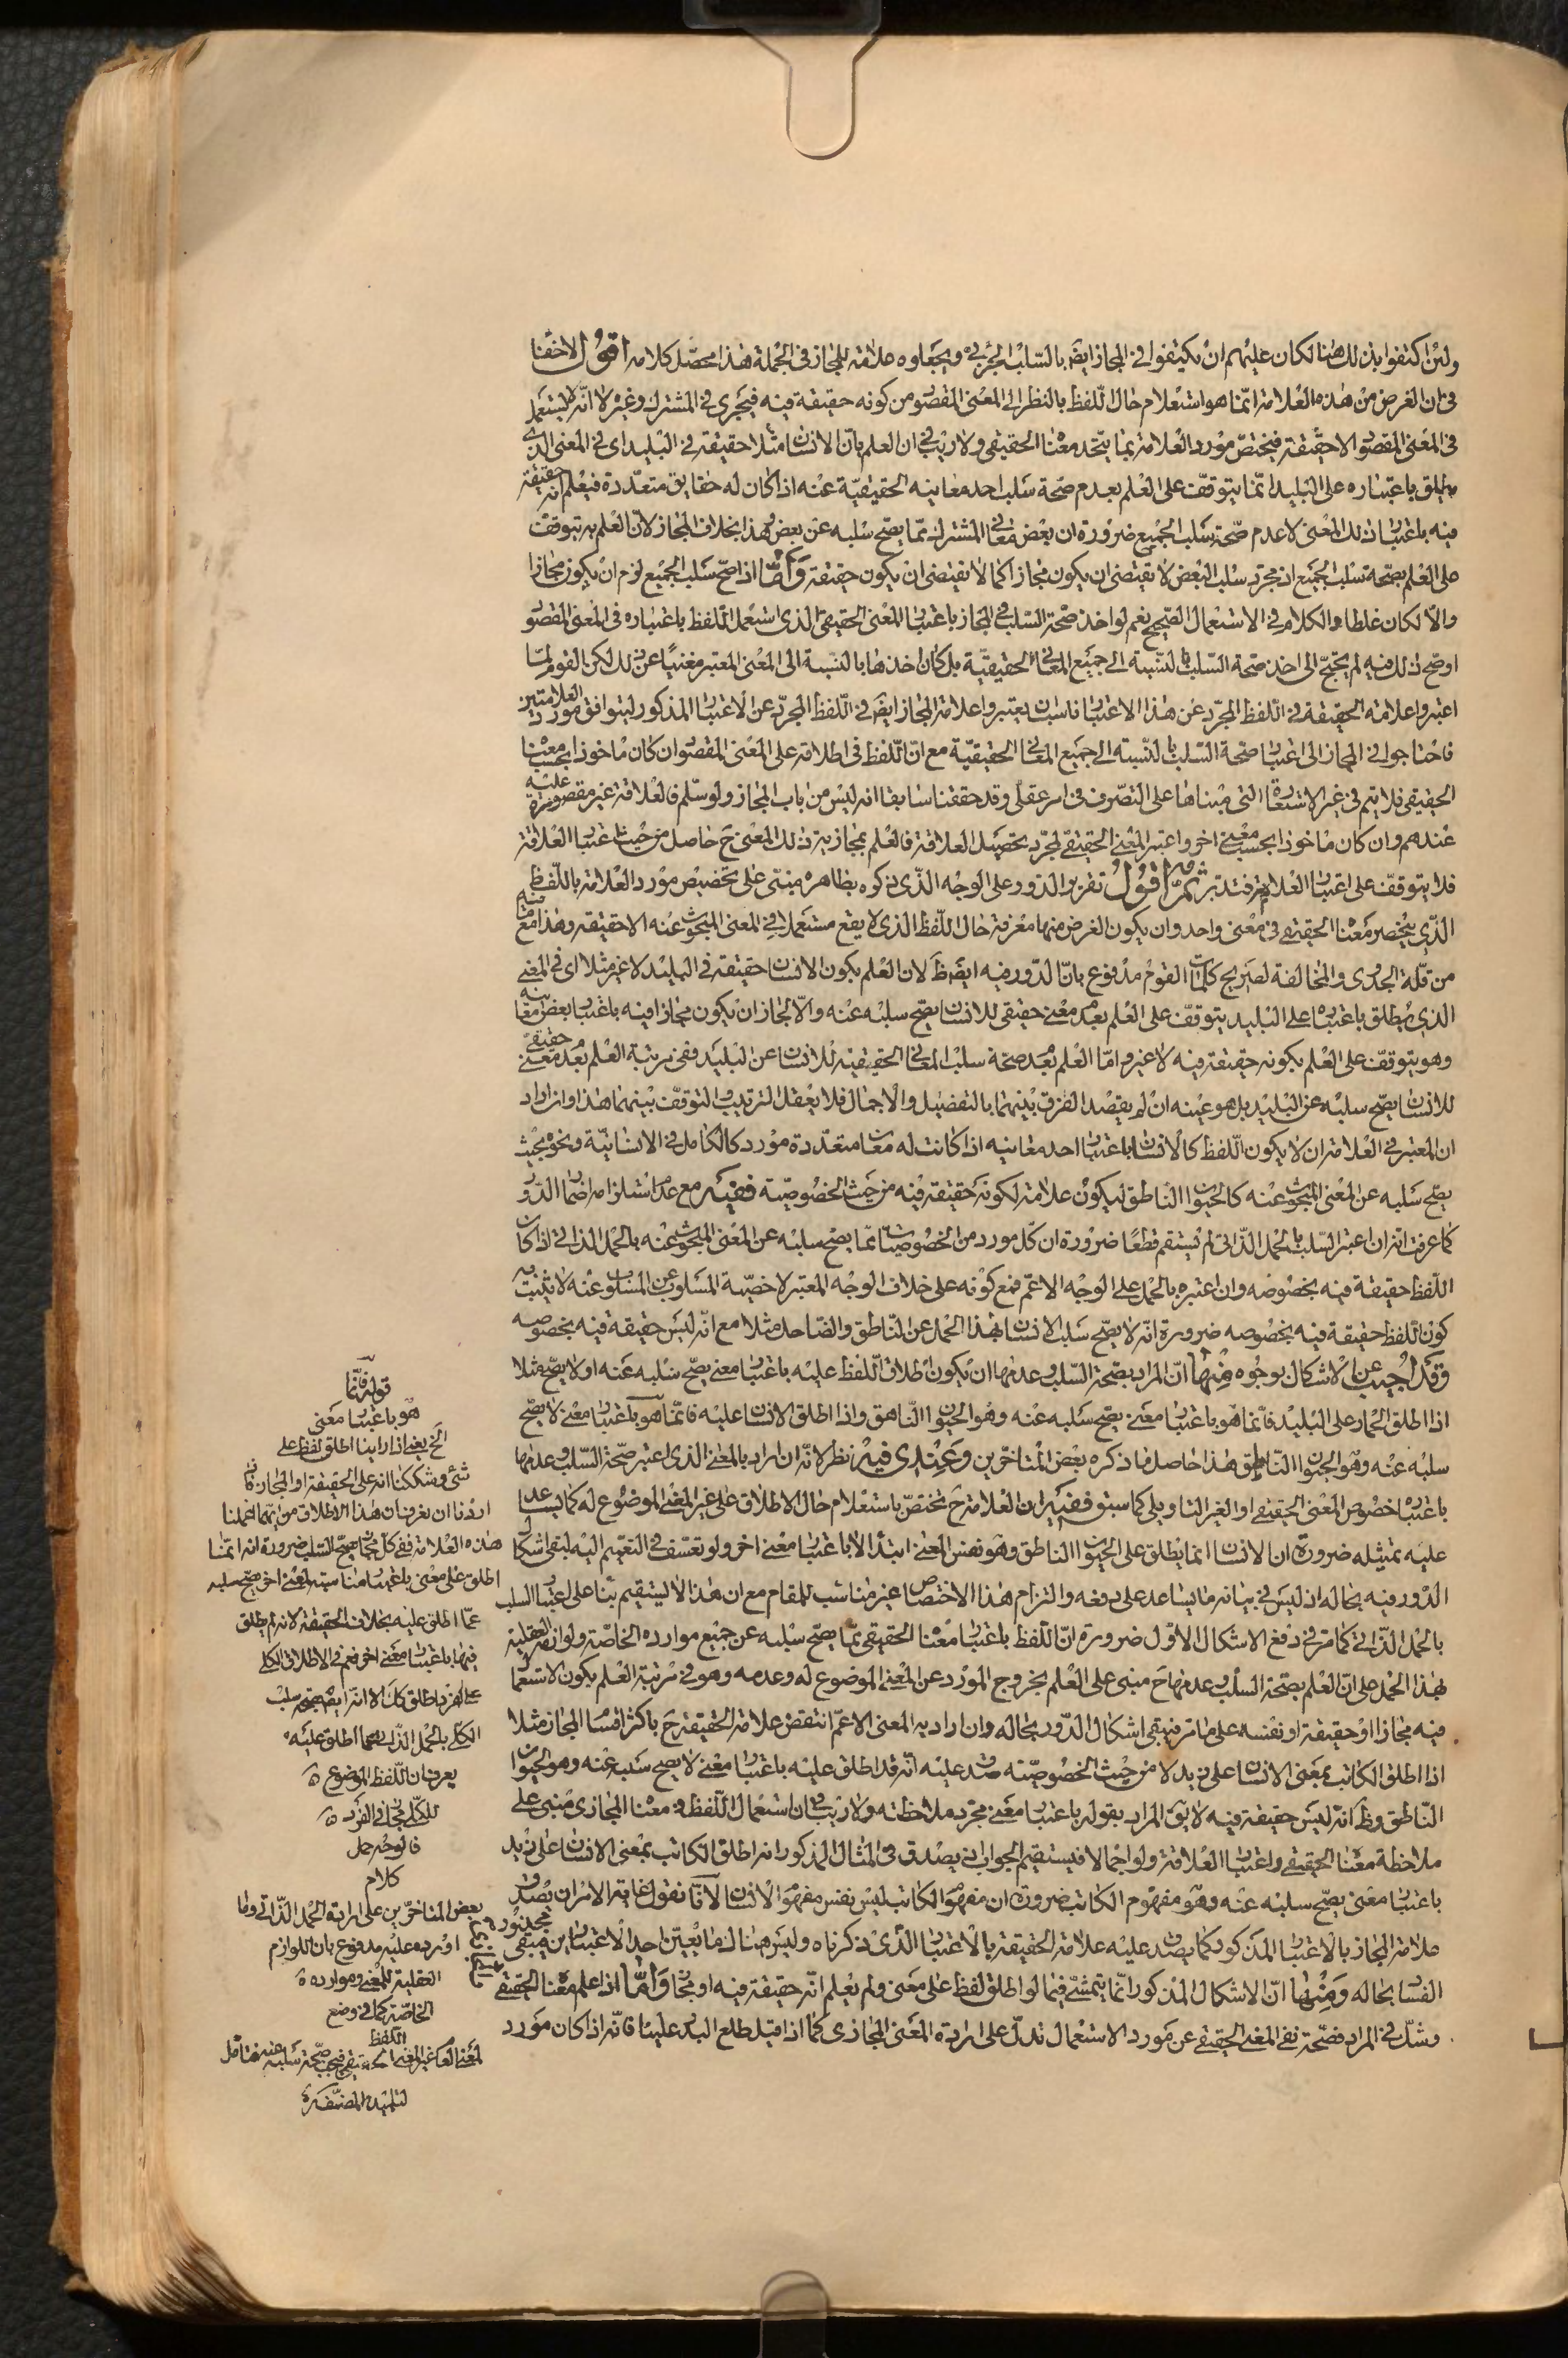 ولئن اكتفوا بذلك هنا لكان عليهم ان يكتفوا في المجاز ايضا بالسّلب الجزئي ويجعلوه علامة للمجاز في الجملة هذا محصّل كلامه اقول لا خفنا
في ان الغرض من هذه العلامة انّما هو استعلام حال اللّفظ بالنظر الى المعنى المقصو من كونه حقيقة فيه فيجرى في المشترك وغيره لا انّه لا يستعمل
في المعنى المقصو الا حقيقة فيختصّ مورد العلامة بما يتّحد معنا الحقيقي ولا ريب في ان العلم بانّ الانسان مثلا حقيقة في البليد اى في المعنى الذى
يطلق باعتباره على البليد انّما يتوقّف على العلم بعدم صحّة سلب احد معانيه الحقيقيّة عنه اذا كان له حقايق متعدّدة فيعلم انه حقيقة
فيه باعتبا ذلك المعنى لا عدم صحّة سلب الجميع ضرورة ان بعض معاني المشترك ممّا يصحّ سلبه عن بعض وهذا بخلاف المجاز لان العلم به يتوقف
على العلم بصحّة سلب الجميع اذ مجرّد سلب البعض لا يقتضى ان يكون مجازا كما لا يقتضى ان يكون حقيقة وامّا اذا صحّ سلب الجميع لزم ان يكون مجازا
والّا لكان غلطا والكلام في الاستعمال الصّحيح نعم لو اخذ صحّة السّلب في المجاز باعتبا المعنى الحقيقي الذى استعمل اللّفظ باعتباره في المعنى المقصو
اوضح ذلك فيه لم يحتجّ الى اخذ صحّة السّلب بالنّسبة الى جميع المعاني الحقيقيّة بل كان اخذها بالنسبة الى المعنى المعتبر مغنيا عن ذلك لكن القوم لمّا
اعتبروا علامة الحقيقة في اللّفظ المجرّد عن هذا الاعتبا ناسب ان يعتبروا علامة المجاز ايضا في اللّفظ المجرّد عن الاعتبا المذكور ليتوافق مورد العلامتين
فاحتاجوا في المجاز الى اعتبا صحّة السّلب بالنّسبة الى جميع المعاني الحقيقيّة مع انّ اللّفظ في اطلاقه على المعنى المقصو ان كان ماخوذا بحسب معنا
الحقيقي فلا يتم في غير الاستعا التى مبناها على التصرّف في امر عقلي وقد حققنا سابقا انه ليس من باب المجاز ولو سلّم فالعلاقة غير مقصورة عليه
عندهم وان كان ماخوذا بحسب معنى اخر واعتبر المعنى الحقيقي لمجرّد تحصيل العلاقة فالعلم بمجازيته ذلك المعنى ح حاصل من حيث اعتبا العلاقة
فلا يتوقّف على اعتبا العلامة فتدبّر ثمّ اقول تقرير الدّور على الوجه الذى ذكروه بظاهره مبنى على تخصيص مورد العلامة باللّفظ
الذى ينحصر معنا الحقيقي في معنى واحد وان يكون الغرض منها معرفة حال اللّفظ الذى لا يقع مستعملا في المعنى المبحوث عنه الا حقيقة وهذا مع ما فيه
من قلّة الجدوى والمخالفة لصريح كلمات القوم مدفوع بانّ الدّور فيه ايضا ظ لان العلم بكون الانسان حقيقة في البليد لا غير مثلا اى في المعنى
الذى يطلق باعتباره على البليد يتوقّف على العلم بعدم معنى حقيقي للانسان يصحّ سلبه عنه والّا لجاز ان يكون مجازا فيه باعتبا بعض معانيه
وهو يتوقّف على العلم بكونه حقيقة فيه لا غير وامّا العلم بعدم صحّة سلب المعاني الحقيقيّة للانسان عن البليد ففي مرتبة العلم بعدم معنى حقيقي
للانسان يصحّ سلبه عن البليد بل هو عينه ان لم يقصد الفرق بينهما بالتفصيل والاجمال فلا يعقل الترتيب والتوقّف بينهما هذا وان اراد
ان المعتبر في العلامة ان لا يكون اللّفظ كالانسان باعتبا احد معانيه اذا كانت له معان متعدّدة مورد كالكامل في الانسانيّة ونحوه بحيث
يصحّ سلبه عن المعنى المبحوث عنه كالحيوان الناطق ليكون علامة لكونه حقيقة فيه من حيث الخصوصيّة ففيه مع عدم استلزامه ايضا الدّور
كما عرفت انّه ان اعتبر السّلب بالحمل الذّاتى لم يستقم قطعا ضرورة ان كلّ مورد من الخصوصيّات ممّا يصحّ سلبه عن المعنى المبحوث عنه بالحمل الذاتى اذا كان
اللّفظ حقيقة فيه بخصوصه وان اعتبره بالحمل على الوجه الاعمّ فمع كونه على خلاف الوجه المعتبر لا خصّية المسلوب عن المسلوب عنه لا يثبت به
كون اللّفظ حقيقة فيه بخصوصه ضرورة انّه لا يصحّ سلب الانسان بهذا الحمل عن النّاطق والضّاحك مثلا مع انّه ليس حقيقة فيه بخصوصه
وقد اجيب عن الاشكال بوجوه منها انّ المراد بصحّة السّلب وعدمها ان يكون اطلاق اللّفظ عليه باعتبا معنى يصحّ سلبه عنه او لا يصحّ مثلا
اذا اطلق الحمار على البليد فانّما هو باعتبا معنى يصحّ سلبه عنه وهو الحيوان النّاهق واذا اطلق الانسان عليه فانّما هو باعتبا معنى لا يصحّ
سلبه عنه وهو الحيوان النّاطق هذا حاصل ما ذكره بعض المتاخّرين وعندى فيه نظر لانّه ان اراد بالمعنى الذى اعتبر صحّة السّلب وعدمها
باعتباره خصوص المعنى الحقيقي او الغير التاويلى كما سبق ففيه ان العلامة ح تختصّ باستعلام حال الاطلاق على غير المعنى الموضوع له كما يساعد
عليه تمثيله ضرورة ان الانسان انما يطلق على الحيوان الناطق وهو نفس المعنى ابتداء لا باعتبا معنى اخر ولو تعسّف في التعميم اليه لبقى اشكال
الدّور فيه بحاله اذ ليس في بيانه ما يساعد على دفعه والتزام هذا الاختصاص غير مناسب للمقام مع ان هذا لا يستقيم بناء على اعتبا السلب
بالحمل الذّاتى كما مرّ في دفع الاشكال الاوّل ضرورة انّ اللّفظ باعتبا معنا الحقيقي ممّا يصحّ سلبه عن جميع موارده الخاصّة ولوازمه العقلية
بهذا الحمل على انّ العلم بصحّة السّلب وعدمها ح مبنى على العلم بخروج المورد عن المعنى الموضوع له وعدمه وهو في مرتبة العلم بكون الاستعمال
فيه مجازا او حقيقة او نفسه على ما مرّ فيبقى اشكال الدّور بحاله وان اراد به المعنى الاعمّ انتقض علامة الحقيقة ح باكثر اقسا المجاز مثلا
اذا اطلق الكاتب بمعنى الانسان على زيد لا من حيث الخصوصيّة صدق عليه انّه قد اطلق عليه باعتبا معنى لا يصح سلبه عنه وهو الحيوان
النّاطق وظ انّه ليس حقيقة فيه لا يق المراد بقوله باعتبا معنى مجرّد ملاحظته ولا ريب في ان استعمال اللّفظ في معنا المجازى مبنى على
ملاحظة معنا الحقيقي واعتبا العلاقة ولو اجمالا فيستقيم الجواب اذ يصدق في المثال المذكور انه اطلق الكاتب بمعنى الانسان على زيد
باعتبا معنى يصحّ سلبه عنه وهو مفهوم الكاتب ضرورة ان مفهوم الكاتب ليس نفس مفهوم الانسان لانّا نقول غاية الامر ان يصدق
علامة المجاز بالاعتبا المذكور كما يصدق عليه علامة الحقيقة بالاعتبا الذى ذكرناه وليس هناك ما يعيّن احد الاعتبارين فيبقى محذور
الفسا بحاله ومنها انّ الاشكال المذكور انّما يتمشّى فيما لو اطلق لفظ على معنى ولم يعلم انّه حقيقة فيه او مجاز وامّا اذا علم معنا الحقيقي
وشكّ في المراد فصحّة نفى المعنى الحقيقي عن مورد الاستعمال تدلّ على ارادة المعنى المجازى كما اذا قيل طلع البدر علينا فانّه اذا كان مورد
قوله فانّما
هو باعتبا معنى
الخ يعنى اذا راينا اطلق لفظ على
شئ وشككنا انه على الحقيقة او المجاز فان
اردنا ان نعرف ان هذا الاطلاق من ايهما اعملنا
هذه العلامة ففي كل مجاز يصحّ السّلب ضرورة انه انّما
اطلق على معنى باعتبا مناسبته لمعنى اخر يصحّ سلبه
عمّا اطلق عليه بخلاف الحقيقة لانه لم يطلق
فيها باعتبا معنى اخر نعم في الاطلاق الكلى
على الفرد باطلاق كك الا انّه ايضا بصحّة سلب
الكلّى بالحمل الذّاتى عما اطلق عليه
يعرف ان اللّفظ الموضوع
للكلّى مجاز في الفرد
فالوجه حمل
كلام
بعض المتاخّرين على ارادة الحمل الذّاتى وما
اورده عليه مدفوع بان اللوازم
العقلية للمعنى وموارده
الخاصّة كما في وضع
اللّفظ
لمعنى العام غير المعنى الحقيقي فيجب صحّة سلبه عنه فتامّل
لتلميذ المصنّف ره